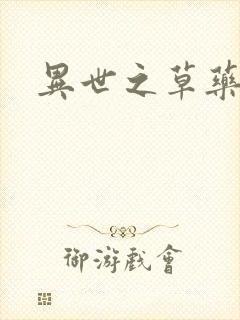 異世之草藥
御游戲會